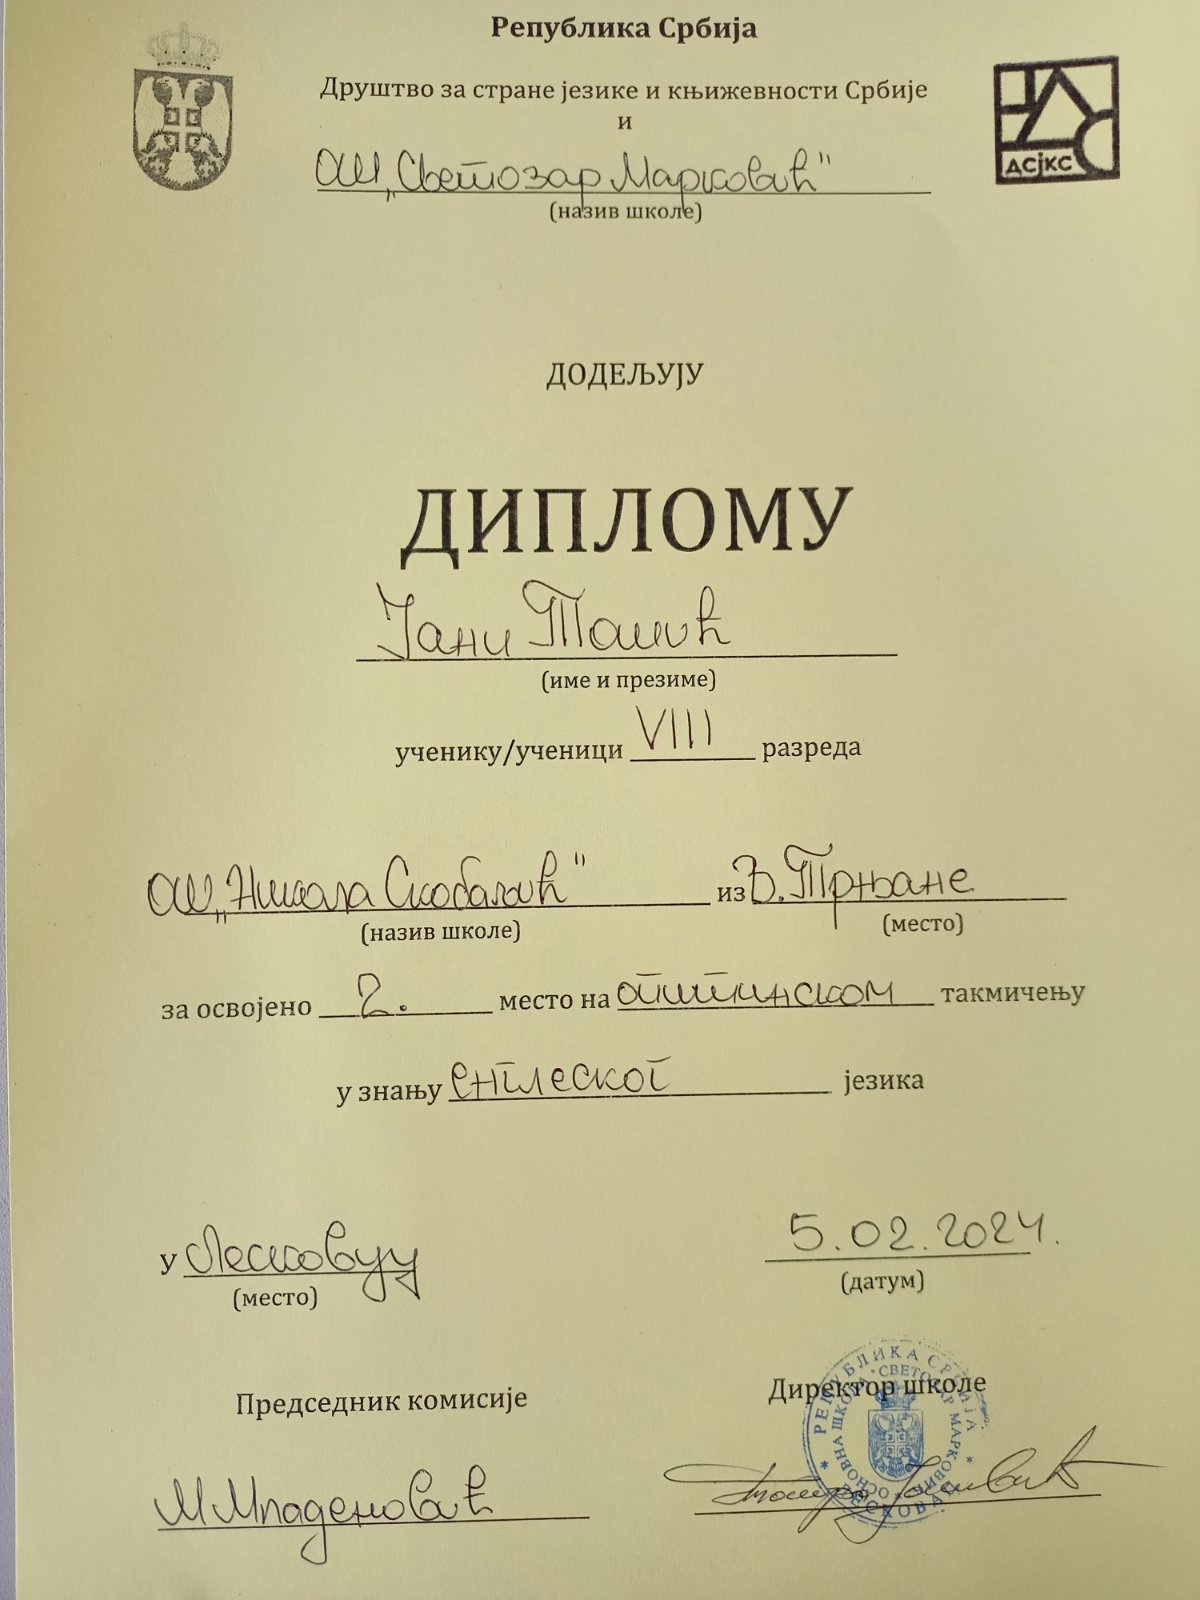 Република Србија
Друштво за стране језике и књижевности Србије
и
ОШ „Светозар Марковић"
(назив школе)
ДСЈКС
ДОДЕЉУЈУ
ДИПЛОМУ
Јани Тошић
(име и презиме)
ученику/ученици VIII разреда
ОШ „Никола Скобаљић" из В. Трњане
(назив школе) (место)
за освојено 2. место на општинском такмичењу
у знању енглеског језика
у Лесковцу 5.02.2024.
(место) (датум)
Председник комисије Директор школе
М Младеновић
РЕПУБЛИКА СРБИЈА
ОСНОВНА ШКОЛА "СВЕТОЗАР МАРКОВИЋ"
ЛЕСКОВАЦ